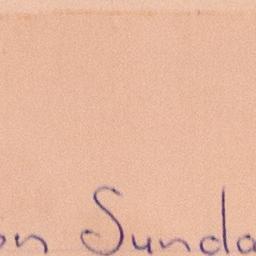 on Sunda